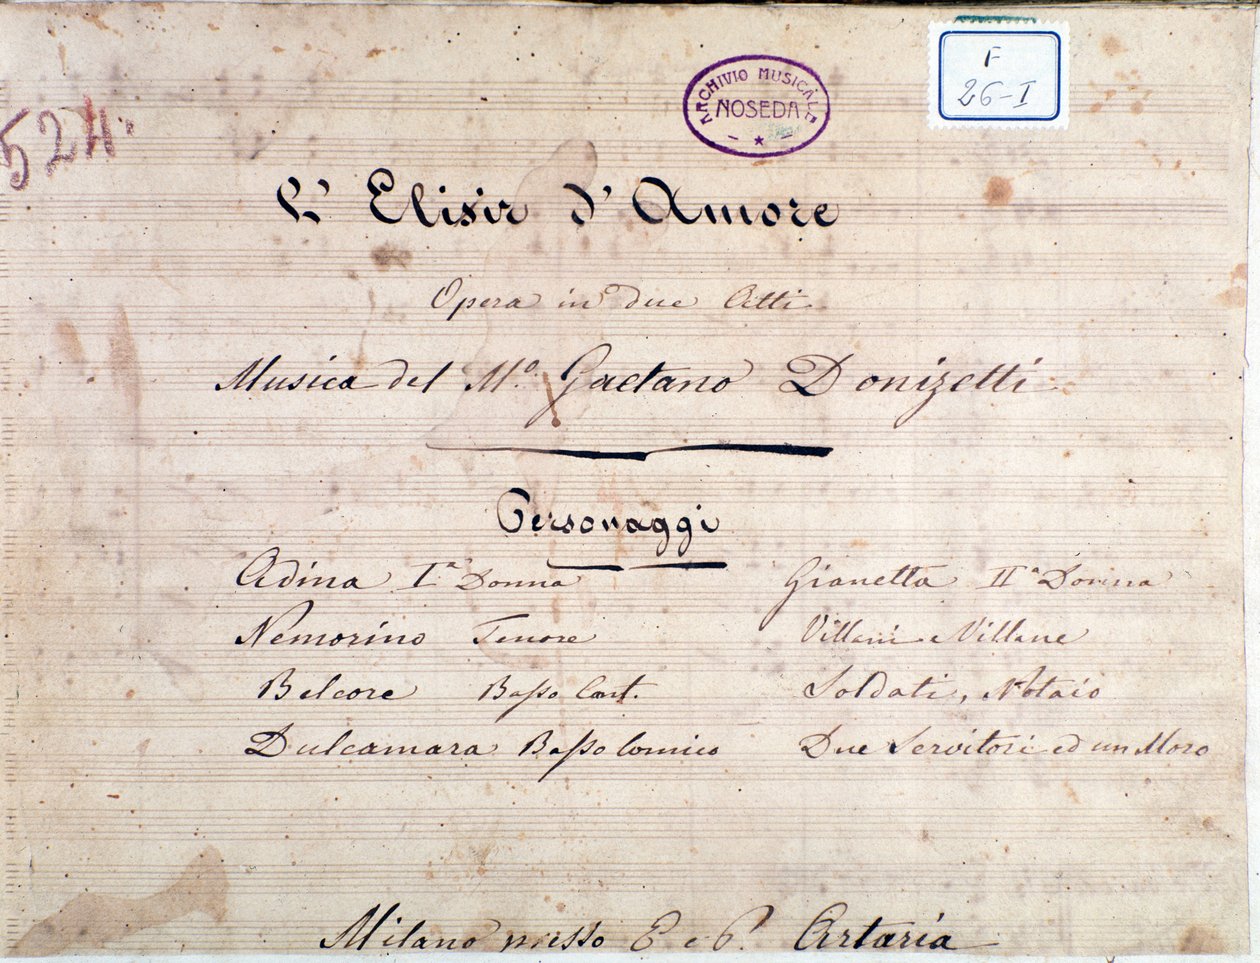 F
26-I
ARCHIVIO MUSICALE
NOSEDA
524.
L'Elisir d'Amore
Opera in due Atti
Musica del Mº. Gaetano Donizetti
Personaggi
Adina Iª Donna
Gianetta IIª Donna
Nemorino Tenore
Villani e Villane
Belcore Basso Cant.
Soldati, Notaio
Dulcamara Basso Comico
Due Servitori ed un Moro
Milano presso E e P. Artaria